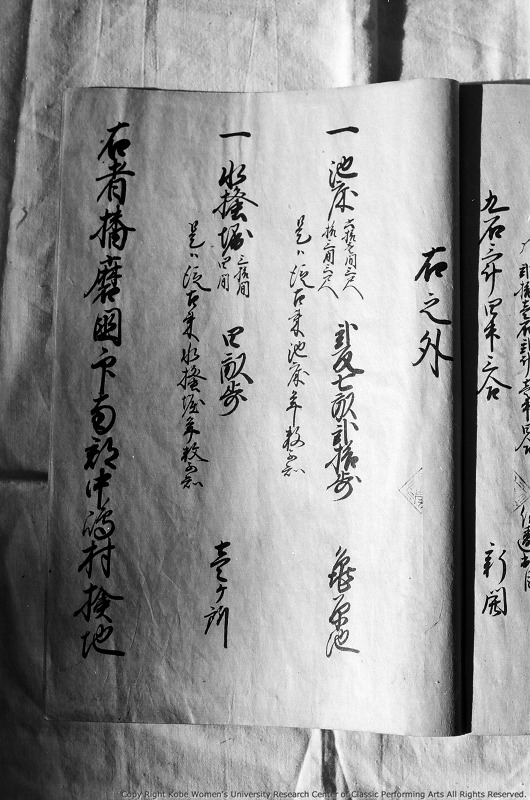 九石三斗四升三合 新開
右之外
一 池床 拾三間三尺 弐反七畝弐拾歩 亀原池
是ハ従古来池床年数不知
一 水養溜 三拾間 四間 四畝歩 壱ヶ所
是ハ従古来水養溜年数不知
右者播磨国印南郡中嶋村検地
Copy Right Kobe Women's University Research Center of Classic Performing Arts All Rights Reserved.